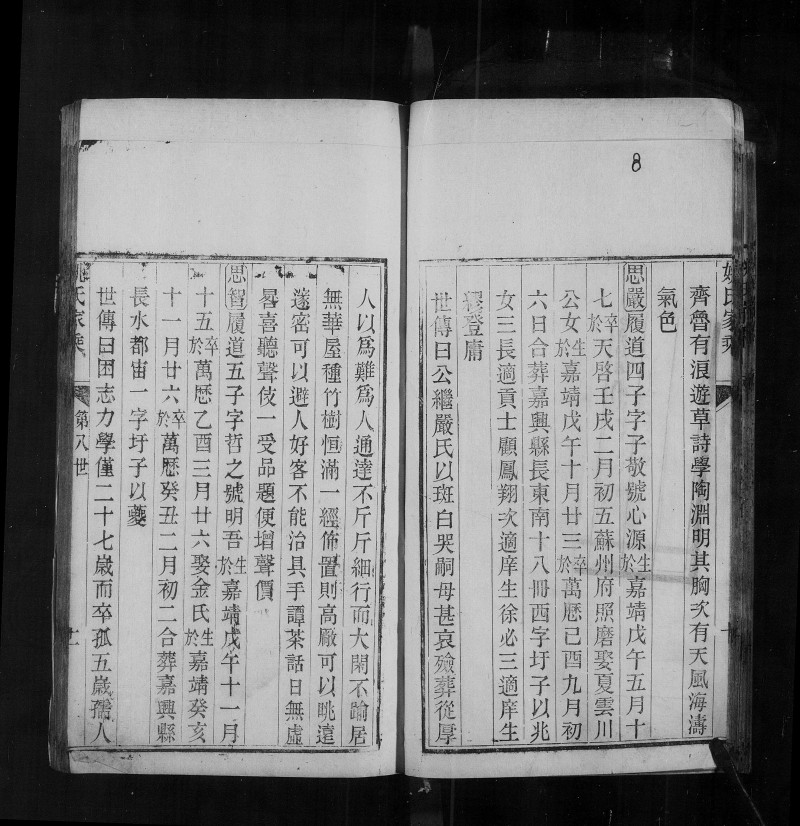 8
姚氏家乘
齊魯有浪遊草詩學陶淵明其胸次有天風海濤
氣色
思嚴履道四子字子敬號心源生於嘉靖戊午五月十
七卒於天啓壬戌二月初五蘇州府照磨娶夏雲川
公女生於嘉靖戊午十月廿三卒於萬歷己酉九月初
六日合葬嘉興縣長東南十八冊西字圩子以兆
女三長適貢士顧鳳翔次適庠生徐必三適庠生
登庸
世傳曰公繼嚴氏以斑白哭嗣母甚哀殮葬從厚
人以爲難爲人通達不斤斤細行而大閑不踰居
無華屋種竹樹恒滿一經佈置則高厰可以眺遠
邃密可以避人好客不能治具手譚茶話日無虛
晷喜聽聲伎一受品題便增聲價
思智履道五子字哲之號明吾生於嘉靖戊午十一月
十五卒於萬歷乙酉三月廿六娶金氏生於嘉靖癸亥
十一月廿六卒於萬歷癸丑二月初二合葬嘉興縣
長水都宙一字圩子以夔
世傳曰困志力學僅二十七歲而卒孤五歲孺人
姚氏家乘
第八世
十一